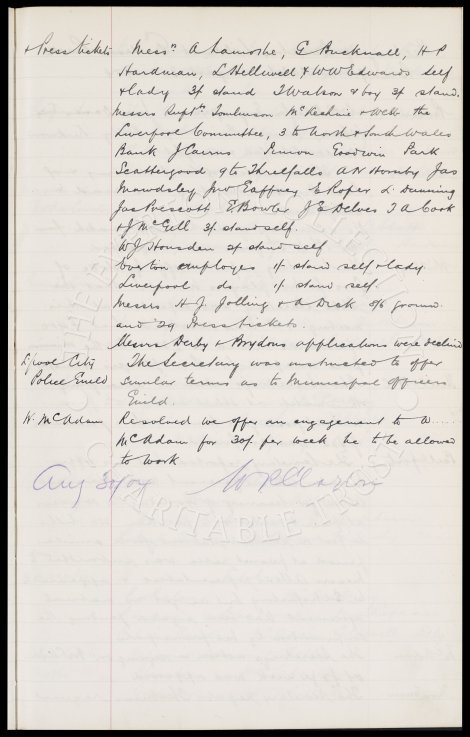 + Press tickets Messrs A Lamothe, G Bucknall, H P
Hardman, L Helliwell & W W Edwards Self
& lady 3/- stand J Watson & boy 3/- stand.
Messrs Supt. Tomlinson McKeshnie & Webb the
Liverpool Committee, 3 to North & South Wales
Bank J Cairns Simon Goodwin Park
Scattergood, 9 to Threlfalls A N Hornby Jas
Mawdsley Jno Gaffney E Roper L. Dunning
Jas Prescott E Bowler J E Delves T A Cook
& J McGill 3/- stand self.
W J Housden 2/- stand self
Everton employes 1/- stand self & lady
Liverpool do 1/- stand self.
Messrs H J Jolling & A Dick 5/6 ground.
and 29 Press tickets.
Messrs Derby & Brydons applications were declined
L'pool City The Secretary was instructed to offer
Police Guild similar terms as to Municipal officers
Guild.
W. McAdam Resolved we offer an engagement to W.....
McAdam for 30/- per week he to be allowed
to work
Aug 30/04 W R Clayton
THE EVERTON
CHARITABLE TRUST